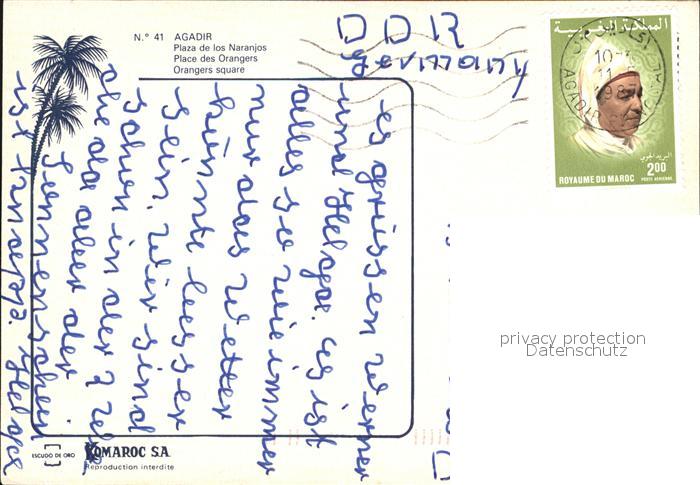 N.° 41 AGADIR
Plaza de los Naranjos
Place des Orangers
Orangers square
DDR
Germany
المملكة المغربية
AGADIR
البريد الجوي
2.00
POSTE AÉRIENNE
ROYAUME DU MAROC
es grüssen Werner
und Helga. es ist
alles so wie immer
nur das Wetter
könnte besser
sein. Wir sind
schon in der 2 Wo
che da aber der
Sonnenschein
ist knapp. Helga
privacy protection
Datenschutz
ESCUDO DE ORO
KOMAROC S.A.
Reproduction interdite